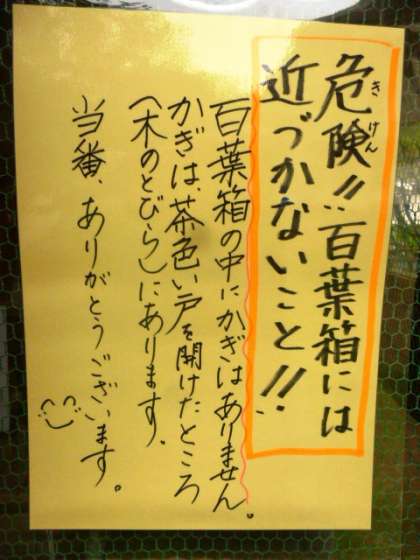 危険!!百葉箱には
きけん
近づかないこと!!
百葉箱の中にかぎはありません。
かぎは、茶色い戸を開けたところ
(木のとびら)にあります。
当番、ありがとうございます。